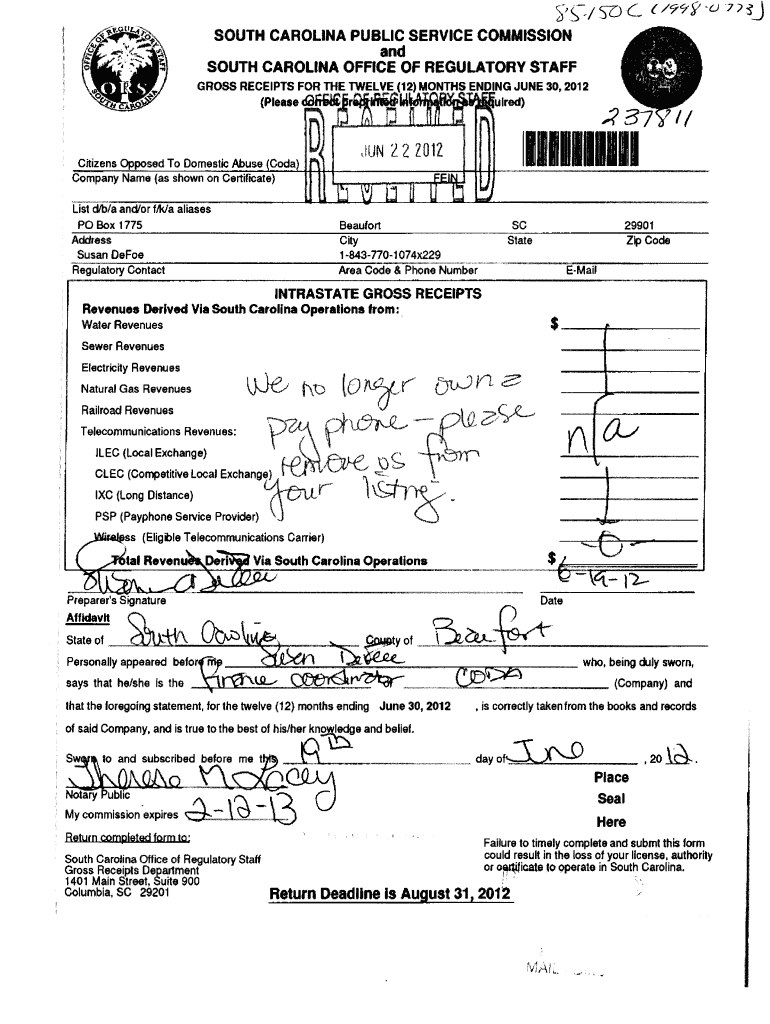 85-150C (1998-0773)
SOUTH CAROLINA PUBLIC SERVICE COMMISSION
and
SOUTH CAROLINA OFFICE OF REGULATORY STAFF
GROSS RECEIPTS FOR THE TWELVE (12) MONTHS ENDING JUNE 30, 2012
(Please correct preprinted information as required)
OFFICE OF REGULATORY STAFF
RECEIVED
JUN 22 2012
OFFICE OF REGULATORY STAFF
ORS
SOUTH CAROLINA
237811
Citizens Opposed To Domestic Abuse (Coda)
Company Name (as shown on Certificate) FEIN
List d/b/a and/or f/k/a aliases
PO Box 1775 Beaufort SC 29901
Address City State Zip Code
Susan DeFoe 1-843-770-1074x229
Regulatory Contact Area Code & Phone Number E-Mail
INTRASTATE GROSS RECEIPTS
Revenues Derived Via South Carolina Operations from:
Water Revenues $
Sewer Revenues
Electricity Revenues
Natural Gas Revenues
Railroad Revenues
Telecommunications Revenues:
ILEC (Local Exchange)
CLEC (Competitive Local Exchange)
IXC (Long Distance)
PSP (Payphone Service Provider)
Wireless (Eligible Telecommunications Carrier)
We no longer own a
pay phone - please
remove us from
your listing.
n/a
-0-
Total Revenues Derived Via South Carolina Operations $
6-19-12
Preparer's Signature Date
Affidavit
State of South Carolina County of Beaufort
Personally appeared before me Susan DeFoe who, being duly sworn,
says that he/she is the Finance coordinator CODA (Company) and
that the foregoing statement, for the twelve (12) months ending June 30, 2012 , is correctly taken from the books and records
of said Company, and is true to the best of his/her knowledge and belief.
Sworn to and subscribed before me this 19th day of June , 20 12.
Theresa M Lacey
Notary Public
My commission expires 2-12-13
Place
Seal
Here
Return completed form to:
South Carolina Office of Regulatory Staff
Gross Receipts Department
1401 Main Street, Suite 900
Columbia, SC 29201
Failure to timely complete and submt this form
could result in the loss of your license, authority
or certificate to operate in South Carolina.
Return Deadline is August 31, 2012